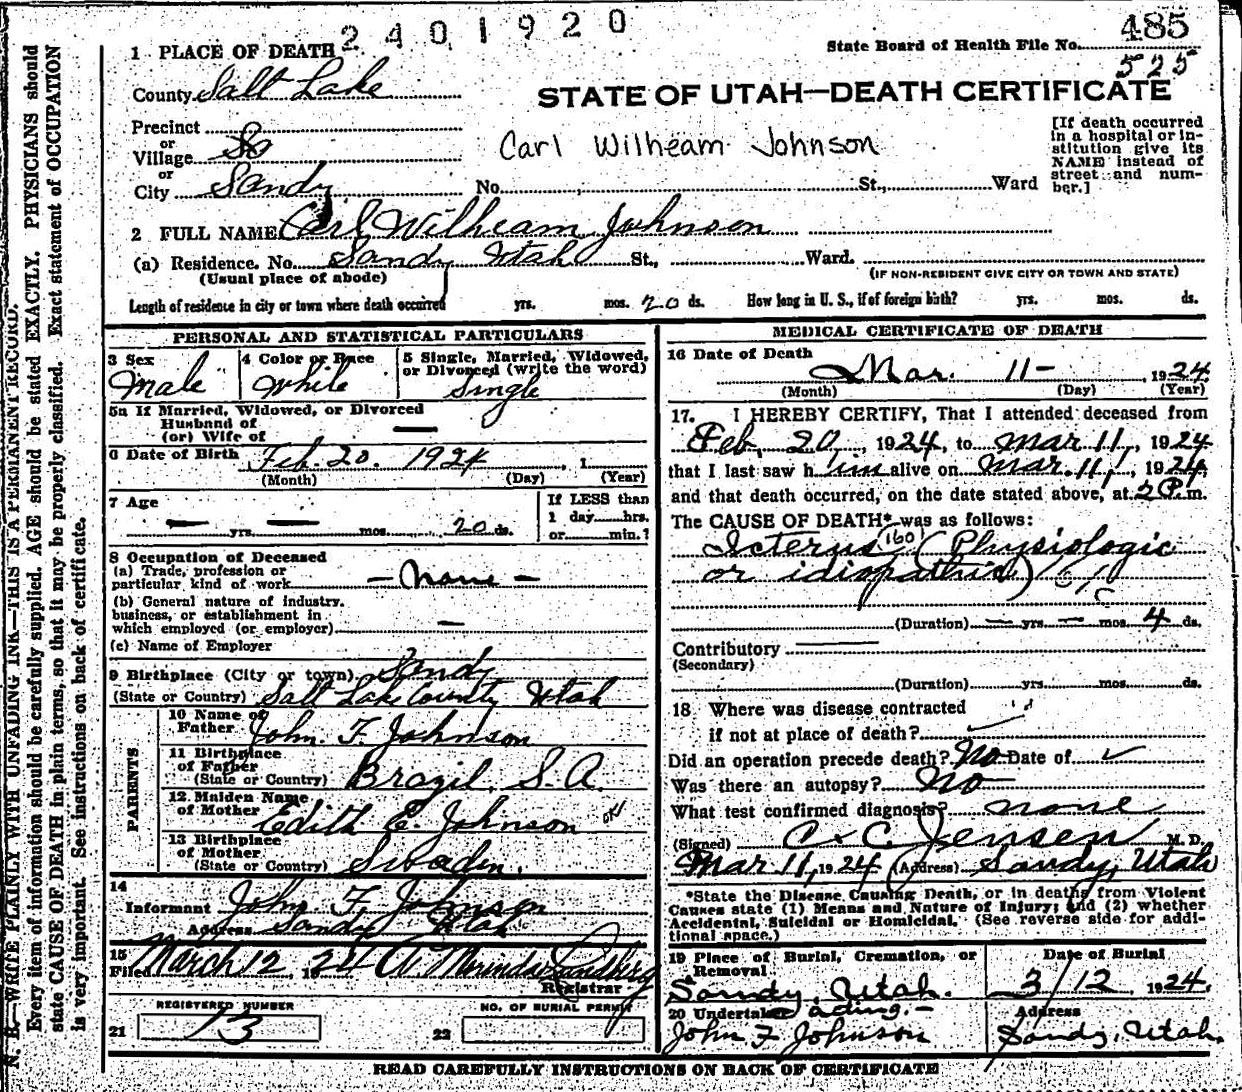 2401920
485
State Board of Health File No.
525
1 PLACE OF DEATH
County Salt Lake
STATE OF UTAH—DEATH CERTIFICATE
Precinct
or
Village So
or
City Sandy
Carl Wilheam Johnson
[If death occurred
in a hospital or in-
stitution give its
NAME instead of
street and num-
ber.]
No. St., Ward
2 FULL NAME Carl Wilheam Johnson
(a) Residence. No. Sandy Utah St., Ward.
(Usual place of abode)
(IF NON-RESIDENT GIVE CITY OR TOWN AND STATE)
Length of residence in city or town where death occurred yrs. mos. 20 ds. How long in U. S., if of foreign birth? yrs. mos. ds.
PERSONAL AND STATISTICAL PARTICULARS
3 Sex
Male
4 Color or Race
White
5 Single, Married, Widowed,
or Divorced (write the word)
Single
5a If Married, Widowed, or Divorced
Husband of
(or) Wife of —
6 Date of Birth Feb. 20. 1924, 1
(Month) (Day) (Year)
7 Age
— yrs. — mos. 20 ds.
If LESS than
1 day hrs.
or min.?
8 Occupation of Deceased
(a) Trade, profession or
particular kind of work — none —
(b) General nature of industry,
business, or establishment in
which employed (or employer) —
(c) Name of Employer
9 Birthplace (City or town) Sandy
(State or Country) Salt Lake County Utah
PARENTS
10 Name of
Father John. F. Johnson
11 Birthplace
of Father
(State or Country) Brazil, S. A.
12 Maiden Name
of Mother Edith E. Johnson OK
13 Birthplace
of Mother
(State or Country) Swoden.
14
Informant John. F. Johnson
Address Sandy Utah
15
Filed March 12, 1924 A. Lundberg
Registrar
REGISTERED NUMBER
21 13
NO. OF BURIAL PERMIT
22
MEDICAL CERTIFICATE OF DEATH
16 Date of Death
Mar. 11- , 1924
(Month) (Day) (Year)
17. I HEREBY CERTIFY, That I attended deceased from
Feb, 20, 1924, to Mar 11, 1924
that I last saw h im alive on Mar. 11, 1924
and that death occurred, on the date stated above, at 2 P. m.
The CAUSE OF DEATH* was as follows:
Icterus (160) (Physiologic
or idiopathic)
(Duration) — yrs. — mos. 4 ds.
Contributory —
(Secondary)
(Duration) yrs. mos. ds.
18 Where was disease contracted
if not at place of death?
Did an operation precede death? No Date of ✓
Was there an autopsy? No
What test confirmed diagnosis? none
(Signed) C. C. Jensen M. D.
Mar 11, 1924 (Address) Sandy, Utah
*State the Disease Causing Death, or in deaths from Violent
Causes state (1) Means and Nature of Injury; and (2) whether
Accidental, Suicidal or Homicidal. (See reverse side for addi-
tional space.)
19 Place of Burial, Cremation, or
Removal
Sandy, Utah.
Date of Burial
3/12, 1924.
20 Undertaker acting.—
John F Johnson
Address
Sandy, Utah.
READ CAREFULLY INSTRUCTIONS ON BACK OF CERTIFICATE
N. B.—WRITE PLAINLY WITH UNFADING INK—THIS IS A PERMANENT RECORD.
Every item of information should be carefully supplied. AGE should be stated EXACTLY. PHYSICIANS should
state CAUSE OF DEATH in plain terms, so that it may be properly classified. Exact statement of OCCUPATION
is very important. See instructions on back of certificate.